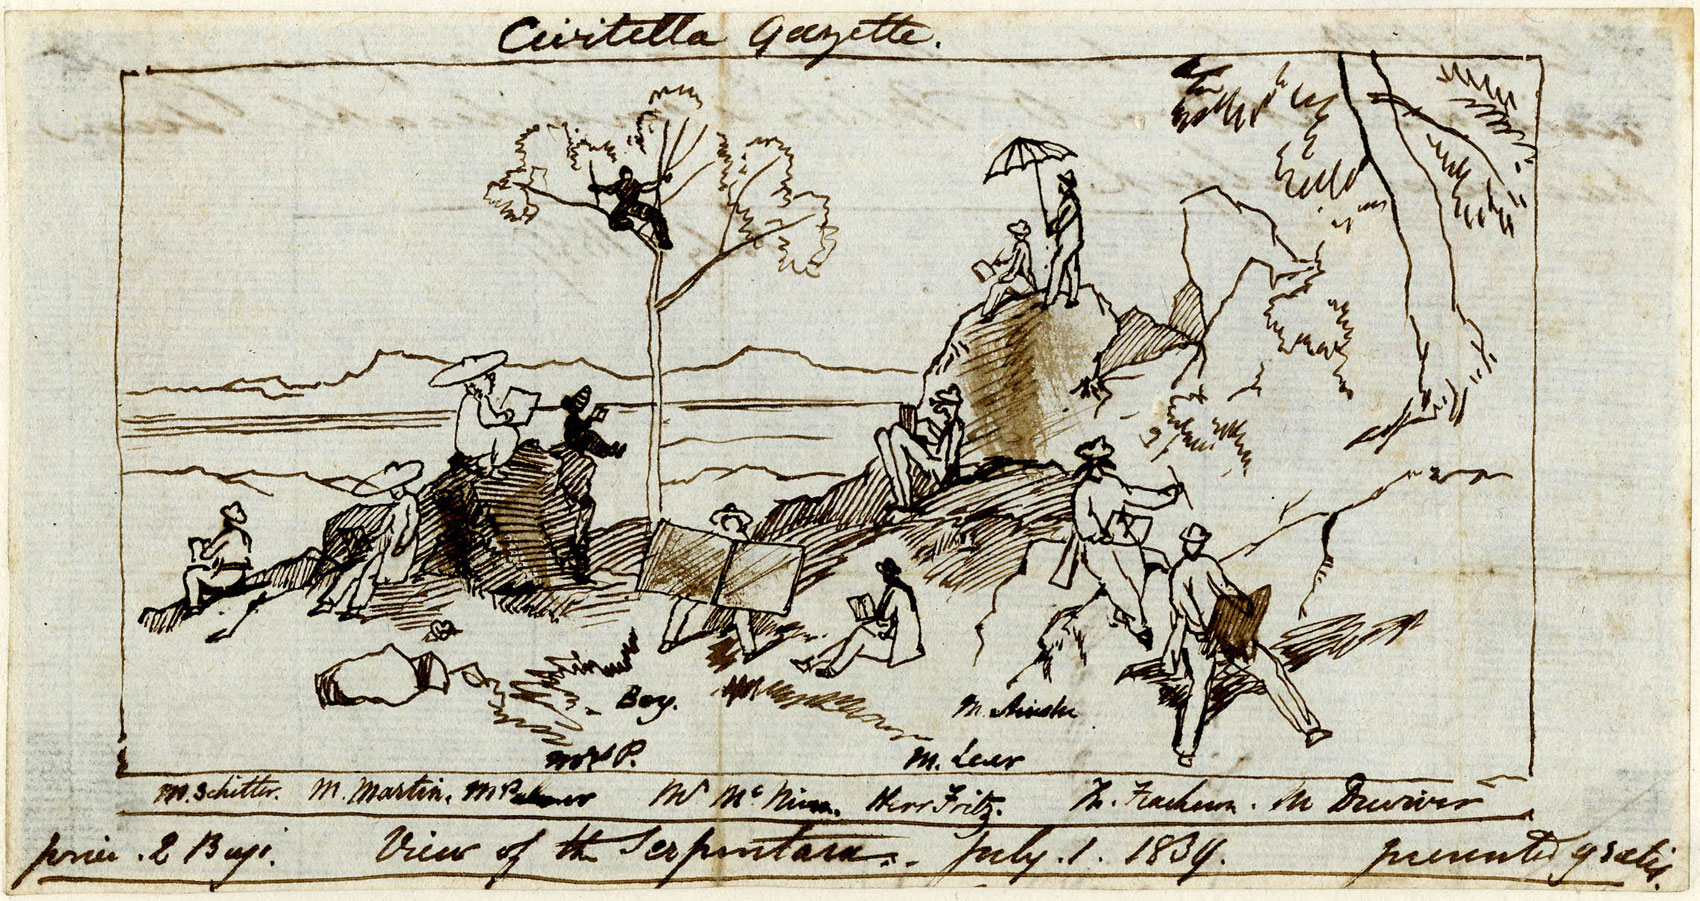 Civitella Gazette.
Boy.
M. Ainslie
Mrs P.
M. Lear
M. Schitter. M. Martin. M Palmer Mr Mc Niven. Herr Fritz. Th. M Duvivier
price . 2 Baji. View of the Serpentara. July . 1. 1839. presented gratis.